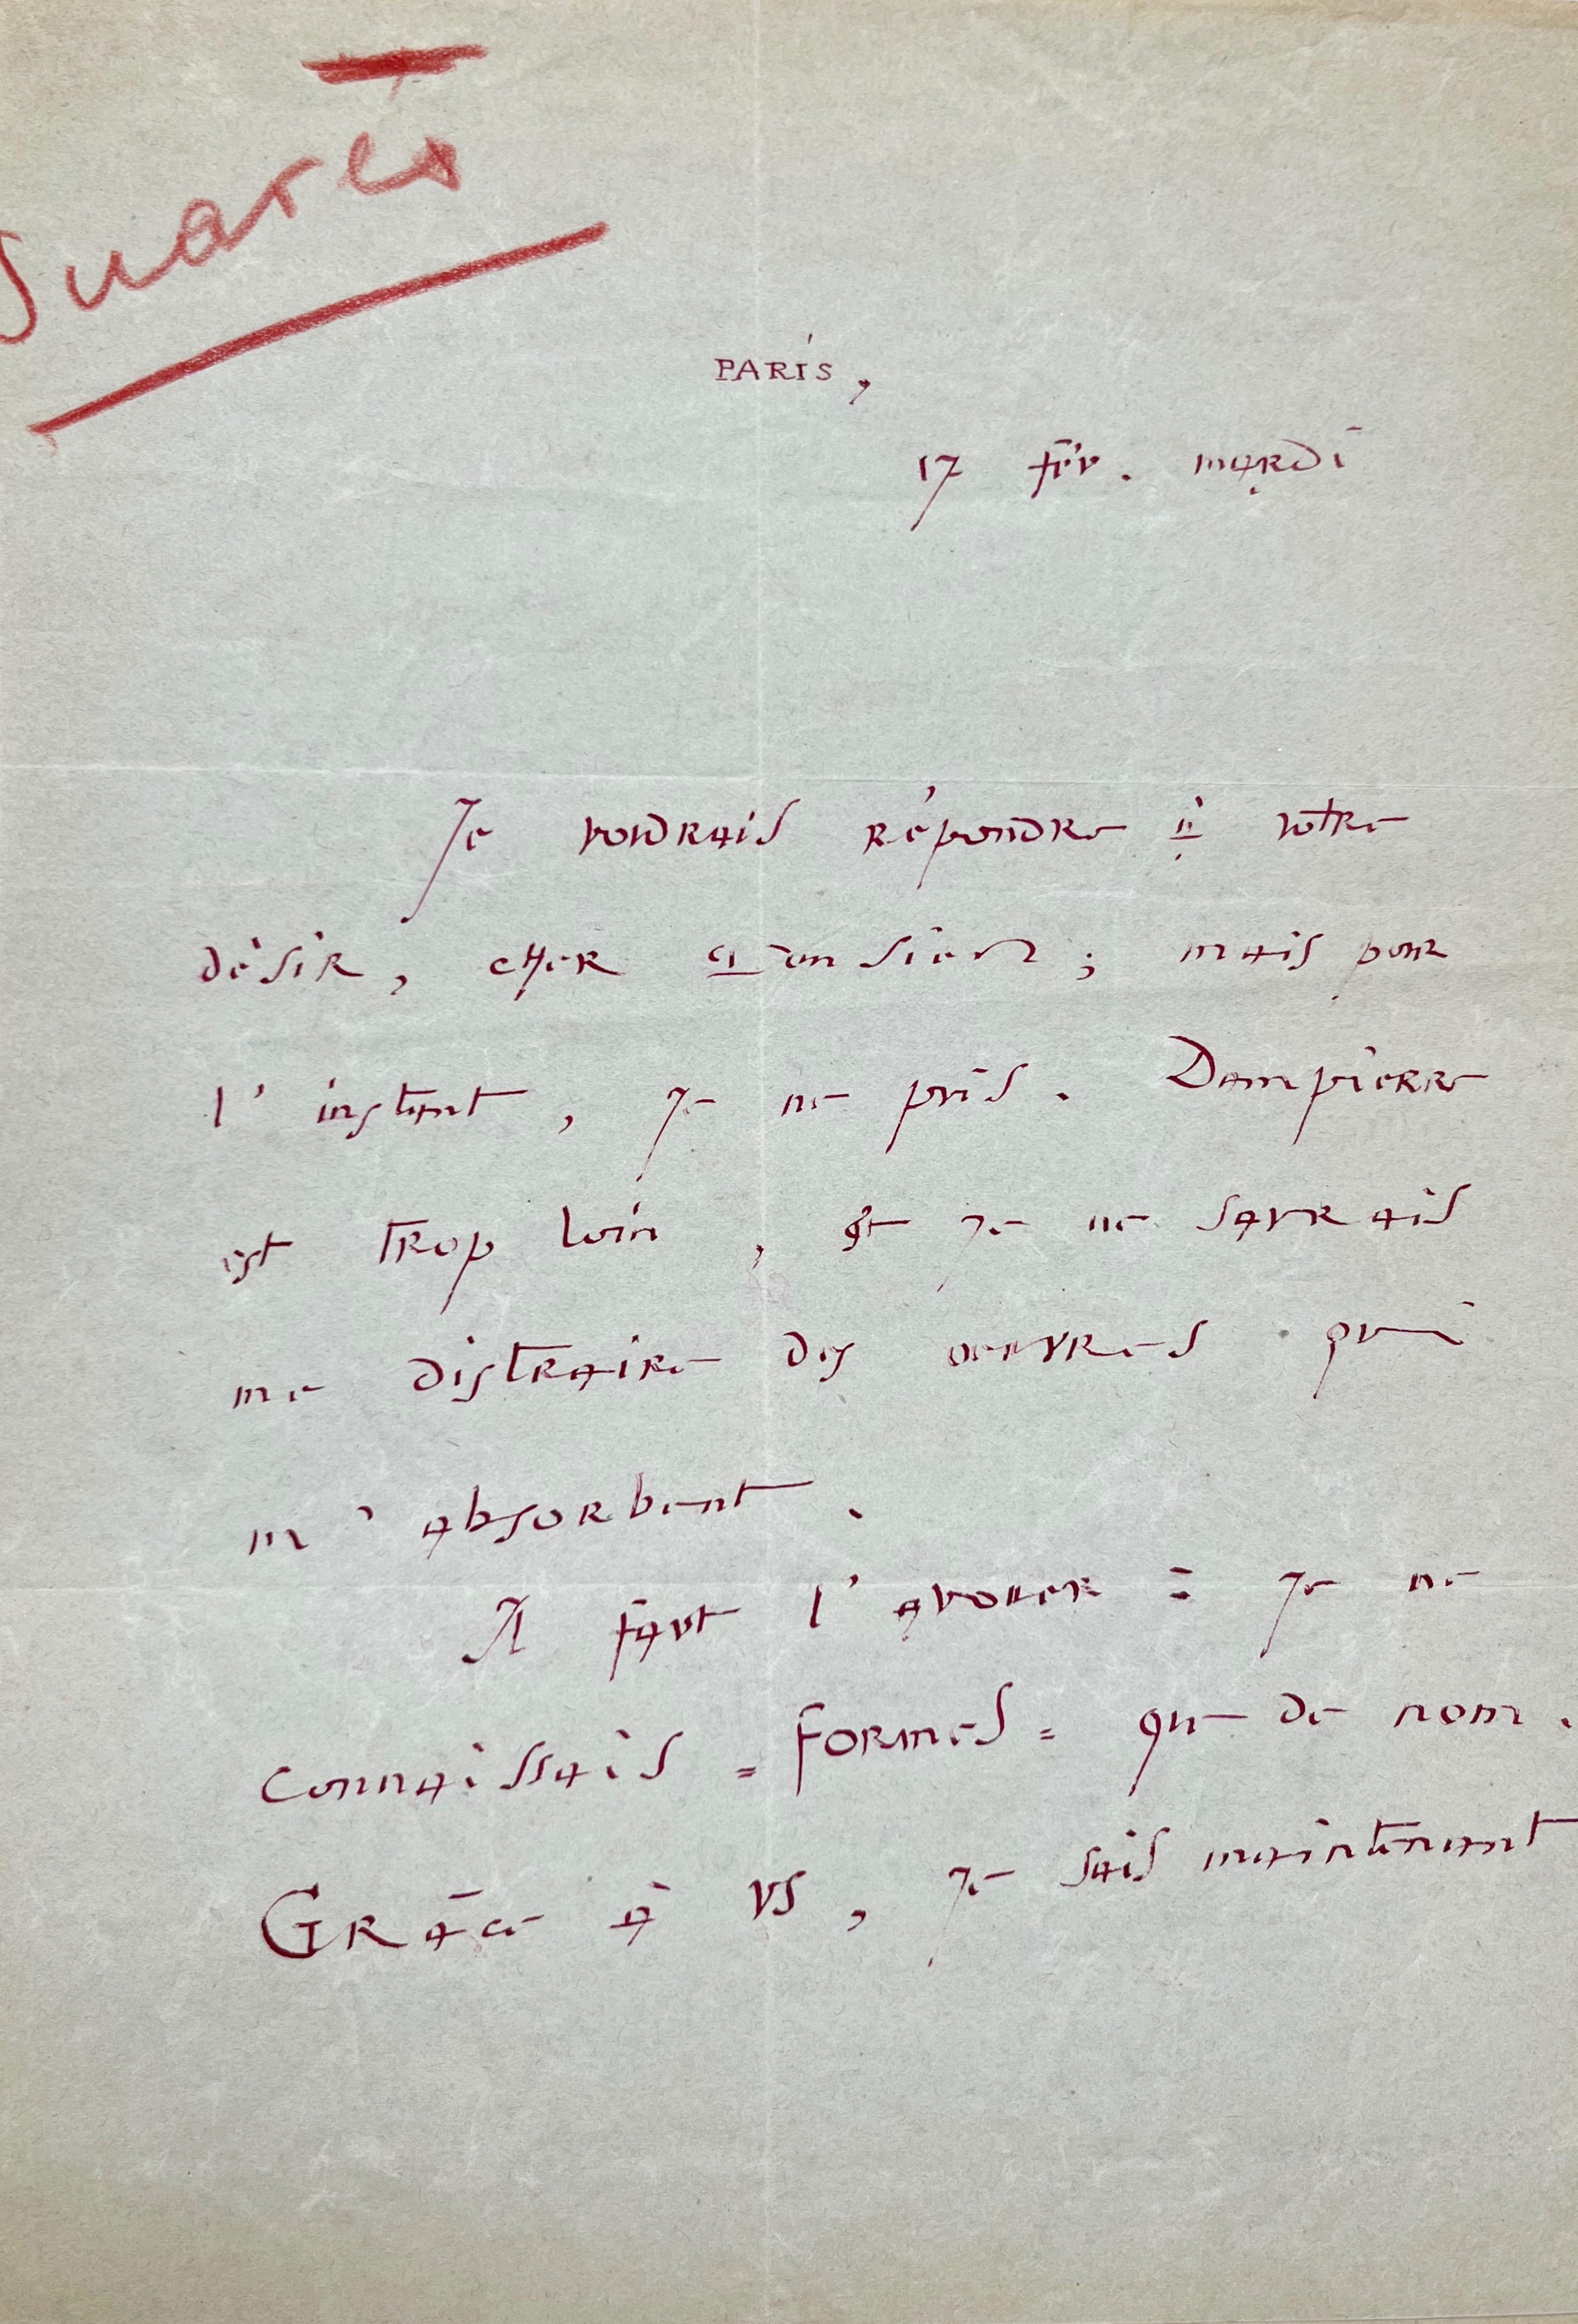 Suarès
PARIS,
17 fév. mardi
Je voudrais répondre à votre
désir, cher Monsieur ; mais pour
l'instant, je ne puis. Dampierre
est trop loin, et je ne saurais
me distraire des oeuvres qui
m'absorbent.
Il faut l'avouer : je ne
connaissais = Formes = que de nom.
Grâce à vs, je sais maintenant